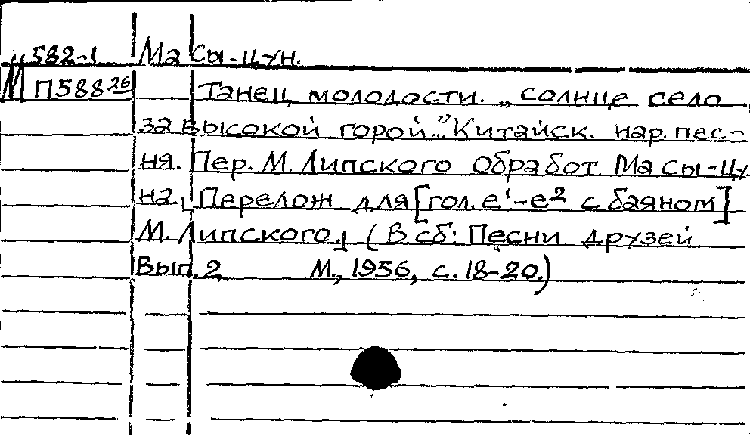 582-1 Ма Сы-цун.
М П588 26 Танец молодости. „Солнце село
за высокой горой..." Китайск. нар. пес-
ня. Пер. М. Липского Обработ Ма Сы-цу
на. Перелож для [гол. e¹-e² с баяном]
М. Липского. (В сб: Песни друзей
Вып. 2 М., 1956, с. 18-20.)